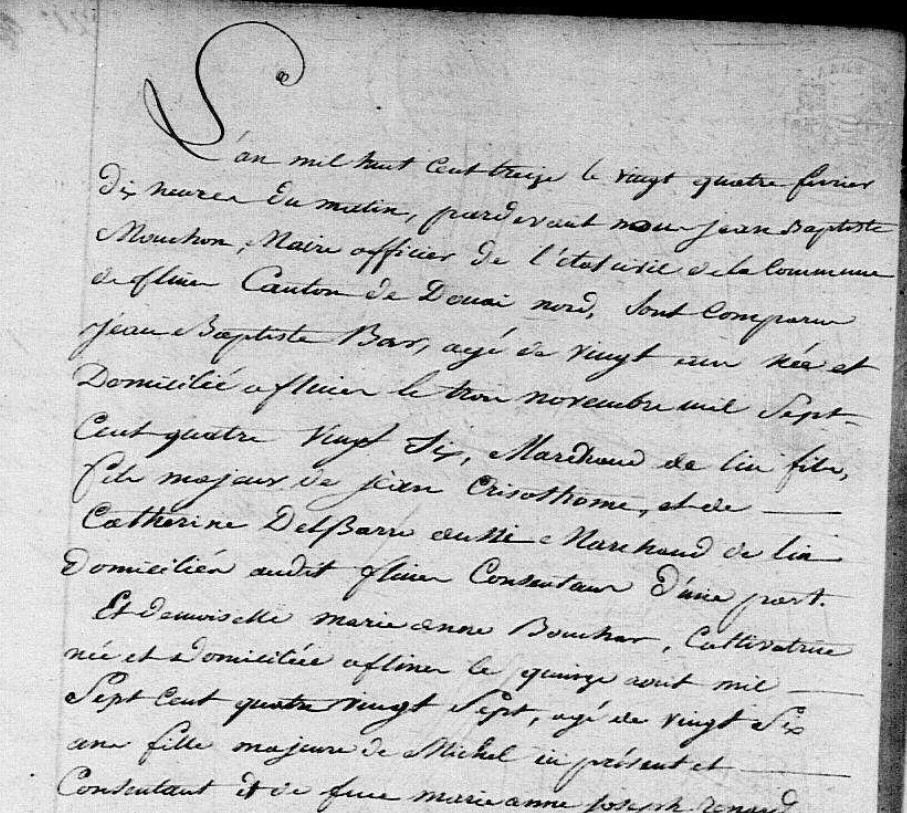 L'an mil huit Cent treize le vingt quatre fevrier
dix heures du matin, pardevant nous jean Baptiste
Mouchon, Maire officier de l'état civil de la Commune
de flines Canton de Douai nord, Sont Comparu
jean Baptiste Bar, agé de vingt née et
Domicilié a flines le trois novembre mil Sept
Cent quatre vingt Six, Marchand de lin file,
fils majeur de jean Crisosthome, et de
Catherine DelBarre aussi Marchand de lin
domiciliés audit flines Consentans d'une part.
Et demoiselle marie anne Bouchar, Cultivatrice
née et Domiciliée a flines le quinze aout mil
Sept Cent quatre vingt Sept, agé de vingt Six
ans fille majeure de Michel ici présent et
Consentant et de feue marie anne joseph renard